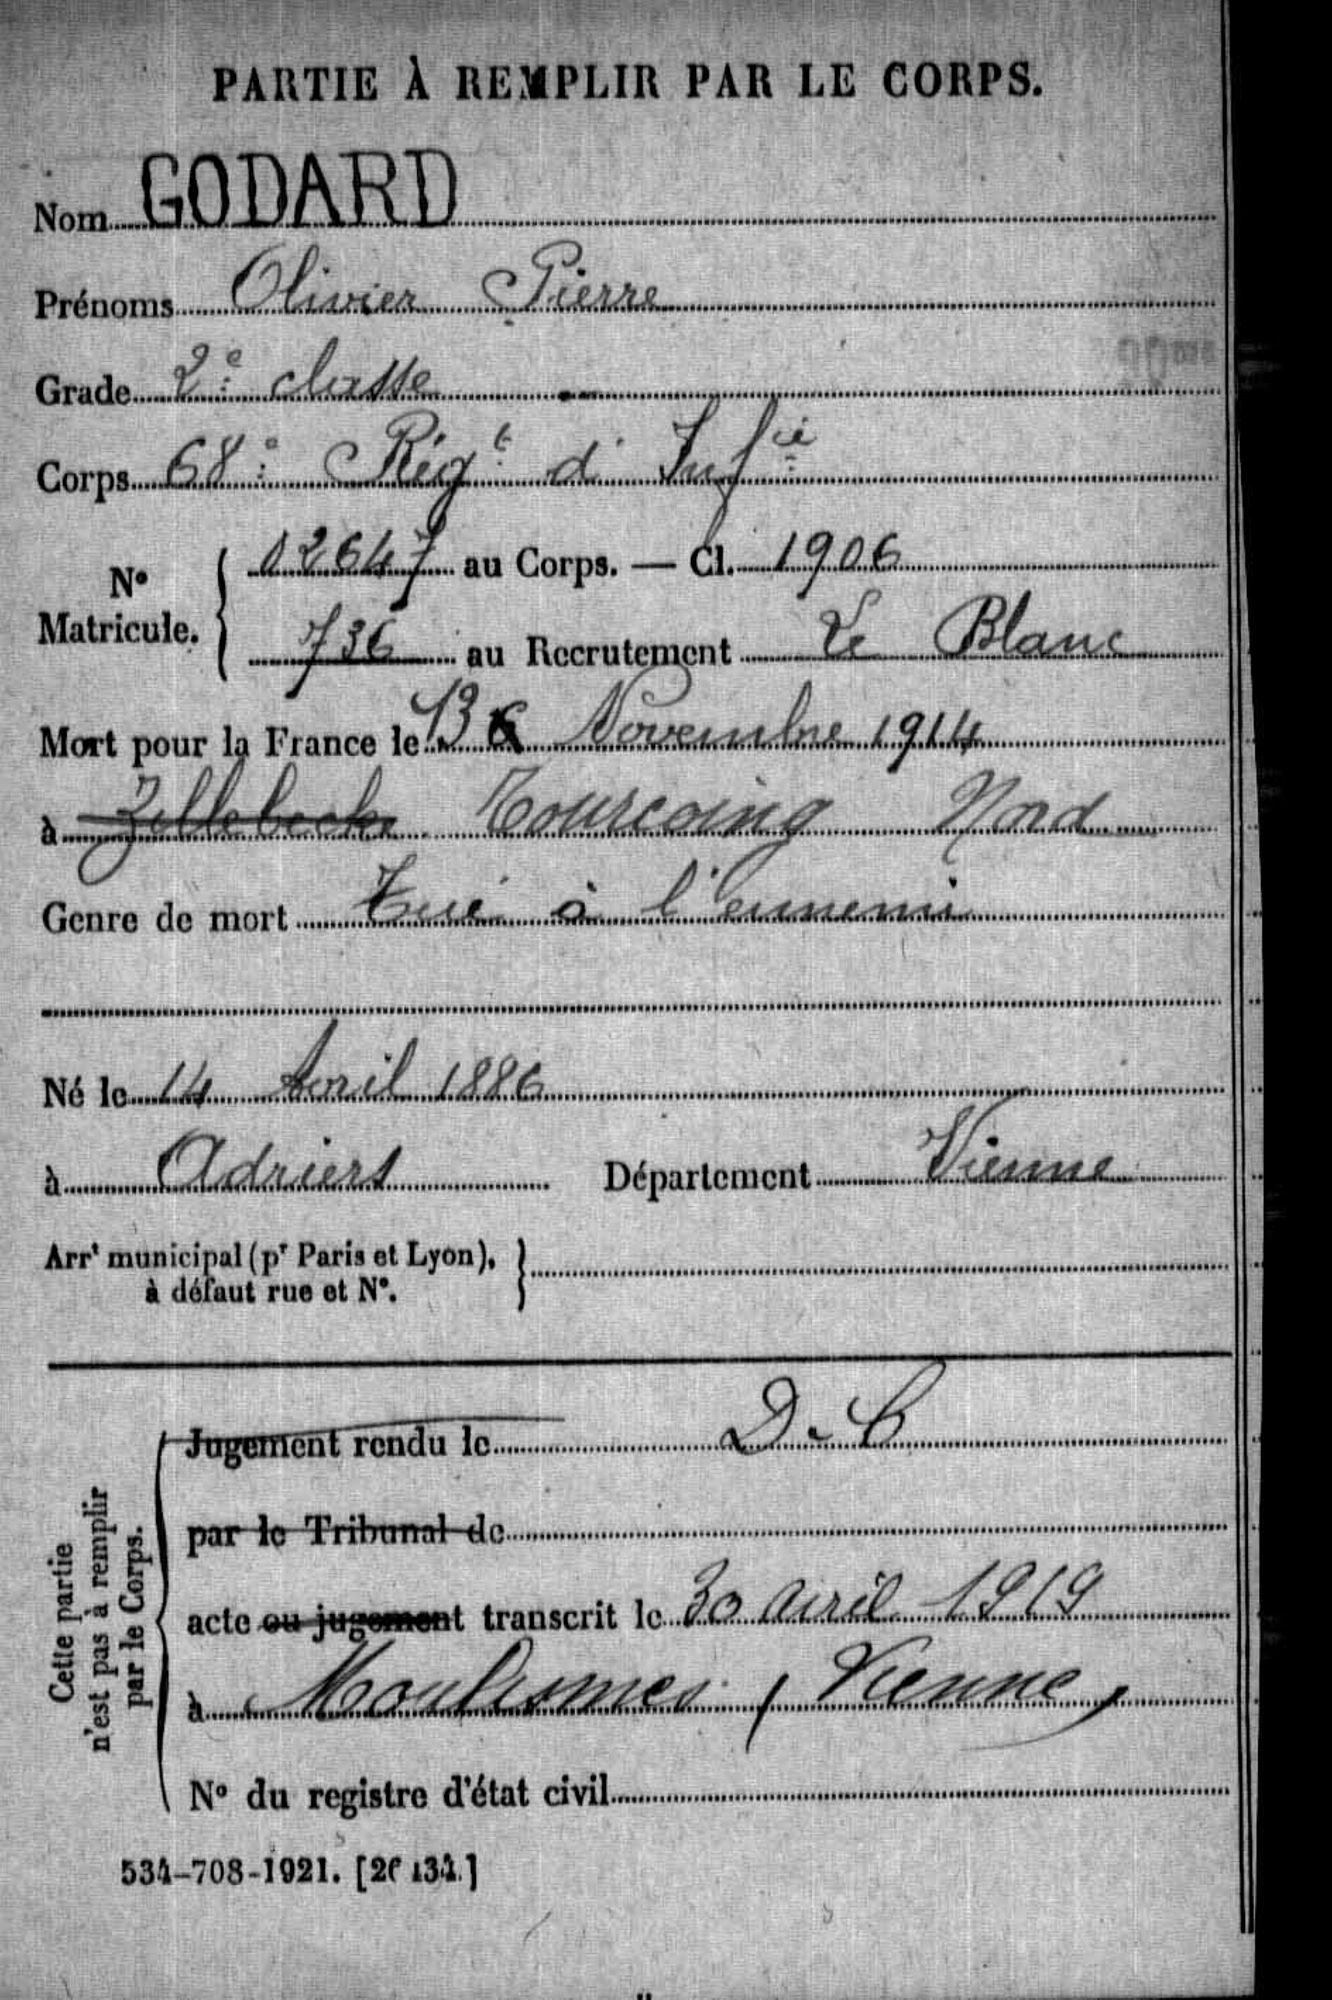 PARTIE À REMPLIR PAR LE CORPS.
Nom GODARD
Prénoms Olivier Pierre
Grade 2e classe
Corps 68e Régt d'Infie
No Matricule. { 02647 au Corps. — Cl. 1906
736 au Recrutement Le Blanc
Mort pour la France le 13 Novembre 1914
à Zillebecke Tourcoing Nord
Genre de mort Tué à l'ennemi
Né le 14 Avril 1886
à Adriers Département Vienne
Arrt municipal (pr Paris et Lyon),
à défaut rue et No.
Cette partie
n'est pas à remplir
par le Corps.
Jugement rendu le D. C
par le Tribunal de
acte ou jugement transcrit le 30 avril 1919
à Moulismes (Vienne)
No du registre d'état civil
534-708-1921. [26434.]